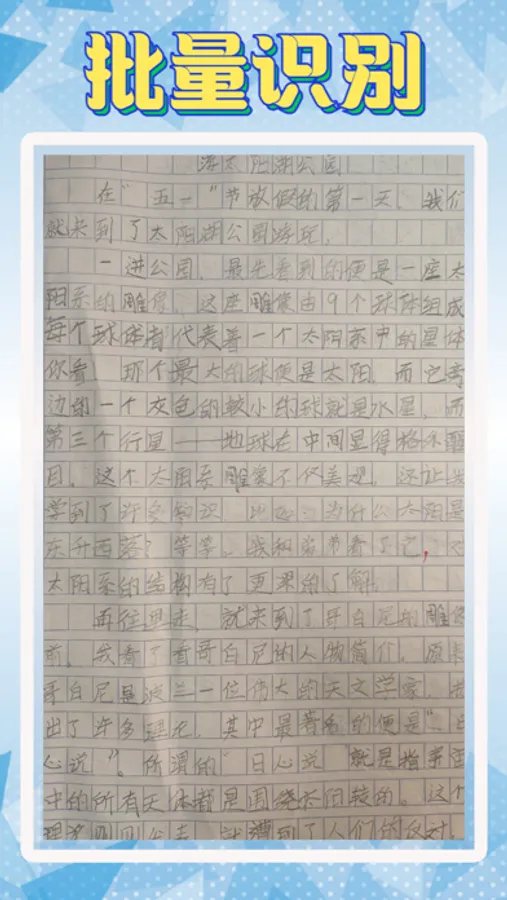 批量识别
游太阳湖公园
在“五一”节放假的第一天，我们
就来到了太阳湖公园游玩。
一进公园，最先看到的便是一座太
阳系的雕像，这座雕像由9个球体组成
每个球体者代表着一个太阳系中的星体
你看，那个最大的球便是太阳，而它旁
边的一个灰色的较小的球就是水星，而
第三个行星——地球在中间显得格外醒
目。这个太阳系雕像不仅美观，还让我
学到了许多知识，比如：为什么太阳是
东升西落？等等。我和弟弟看了它，对
太阳系的结构有了更深的了解。
再往里走，就来到了哥白尼的雕像
前，我看了看哥白尼的人物简介，原来
哥白尼是波兰一位伟大的天文学家，
出了许多理论，其中最著名的便是“日
心说”。所谓的“日心说 就是指宇宙
中的所有天体都是围绕太阳较的。这个
理论刚刚公布，就遭到了人们的反对，